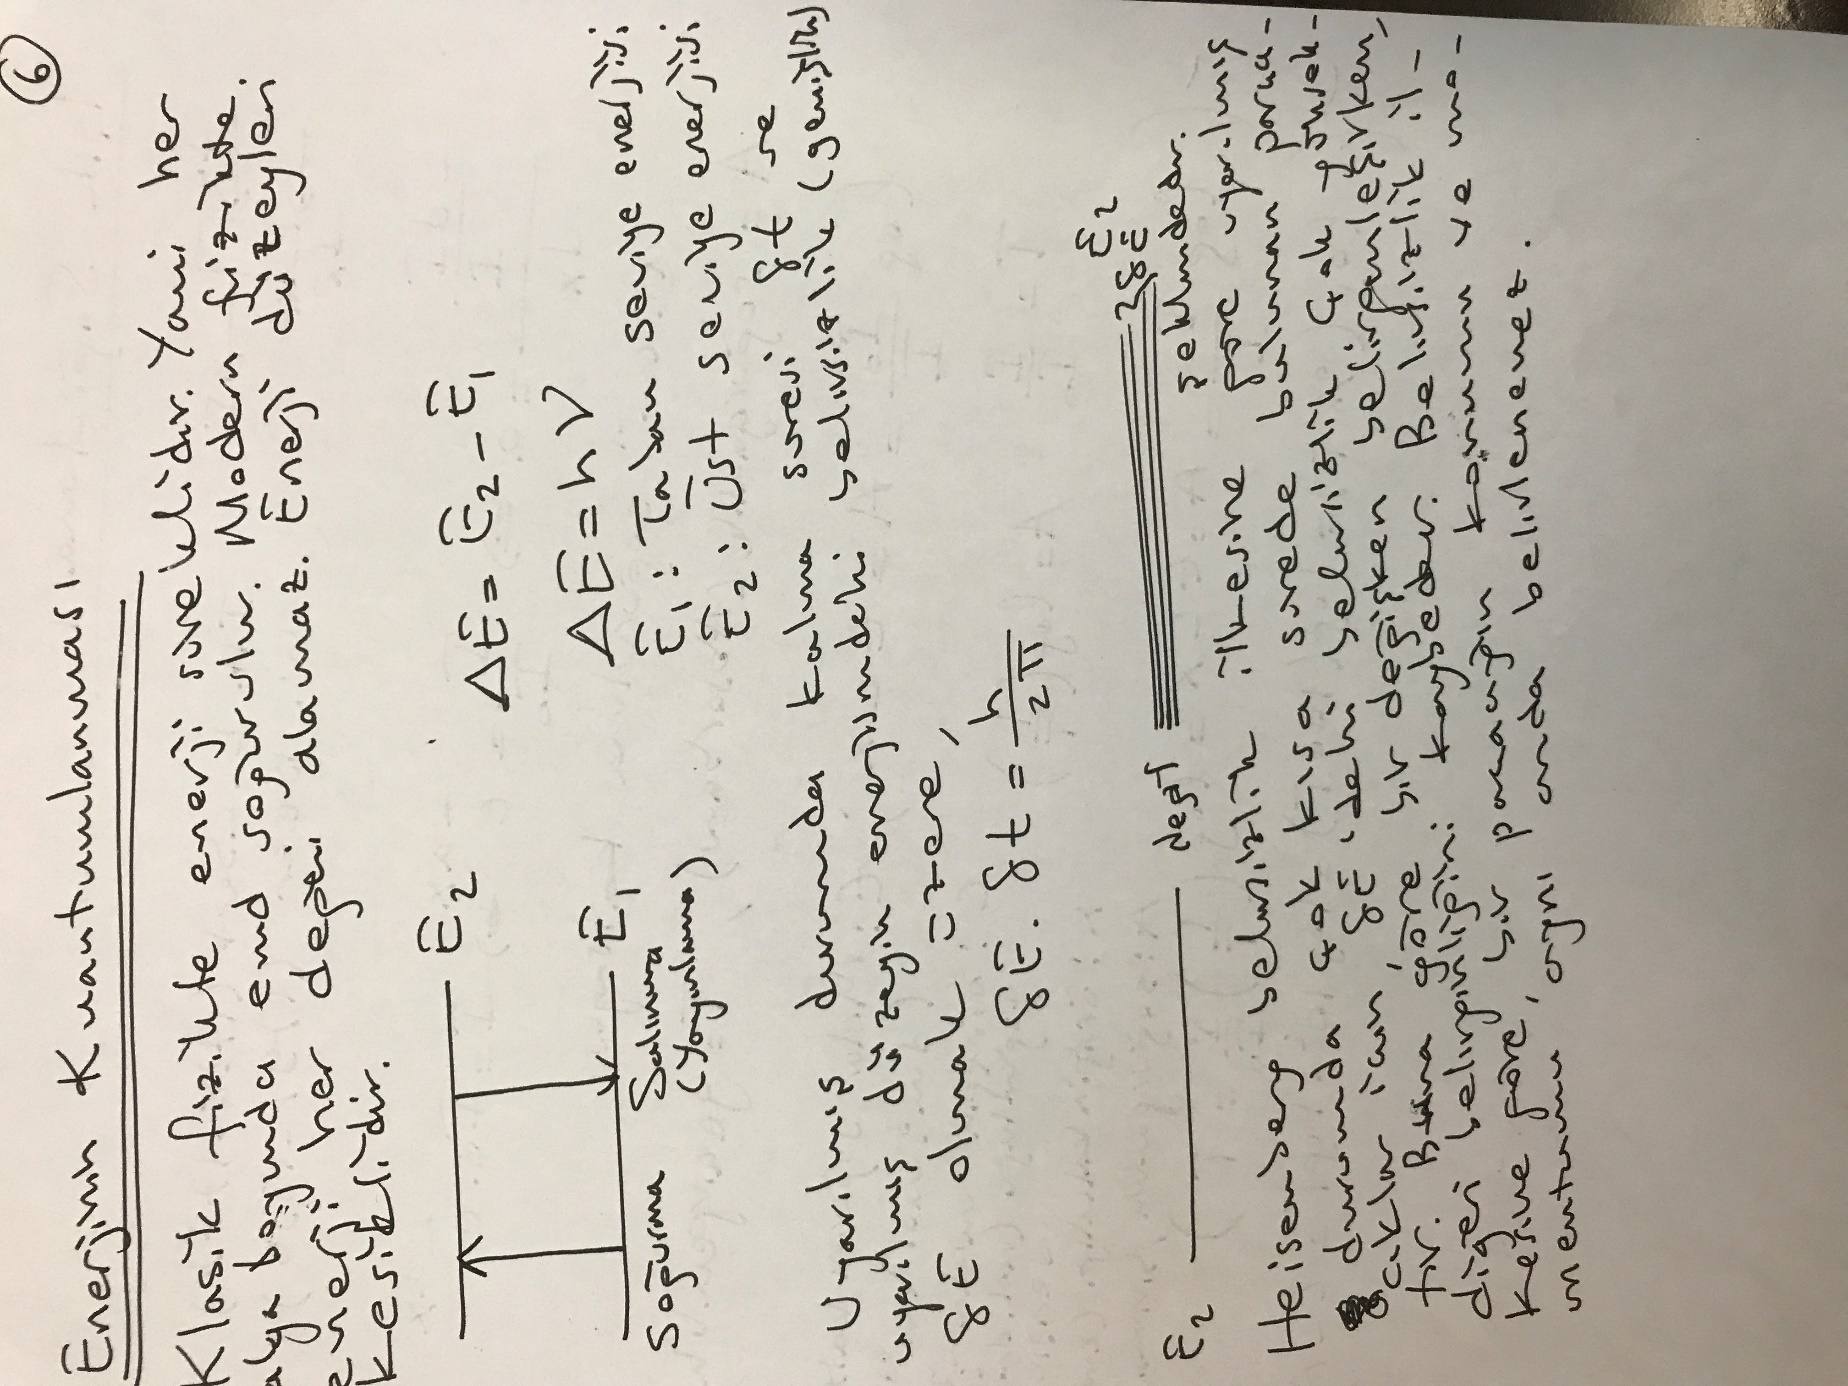 6
Enerjinin Kuantumlanması
Klasik fizikte enerji süreklidir. Yani her
dalga boyunda emd soğurulur. Modern fizikte
enerji her değeri alamaz. Enerji düzeyleri
kesiklidir.
E2
ΔE = E2 - E1
ΔE = hν
E1
E1: Taban seviye enerjisi
E2: Üst seviye enerjisi
Soğurma Salınma
(Yayınlama)
Uyarılmış durumda kalma süresi δt ve
uyarılmış düzeyin enerjisindeki belirsizlik (genişlik)
δE olmak üzere,
δE . δt = h/2π
E2 değil E2
2δE
şeklindedir.
Heisenberg belirsizlik ilkesine göre uyarılmış
durumunda çok kısa sürede bulunan parça-
cıklar için δE'deki belirsizlik çok yüksek-
tir. Buna göre bir değişken belirginleşirken,
diğeri belirginliğini kaybeder. Belirsizlik il-
kesine göre, bir parçacığın konumu ve mo-
mentumu aynı anda belirlenemez.